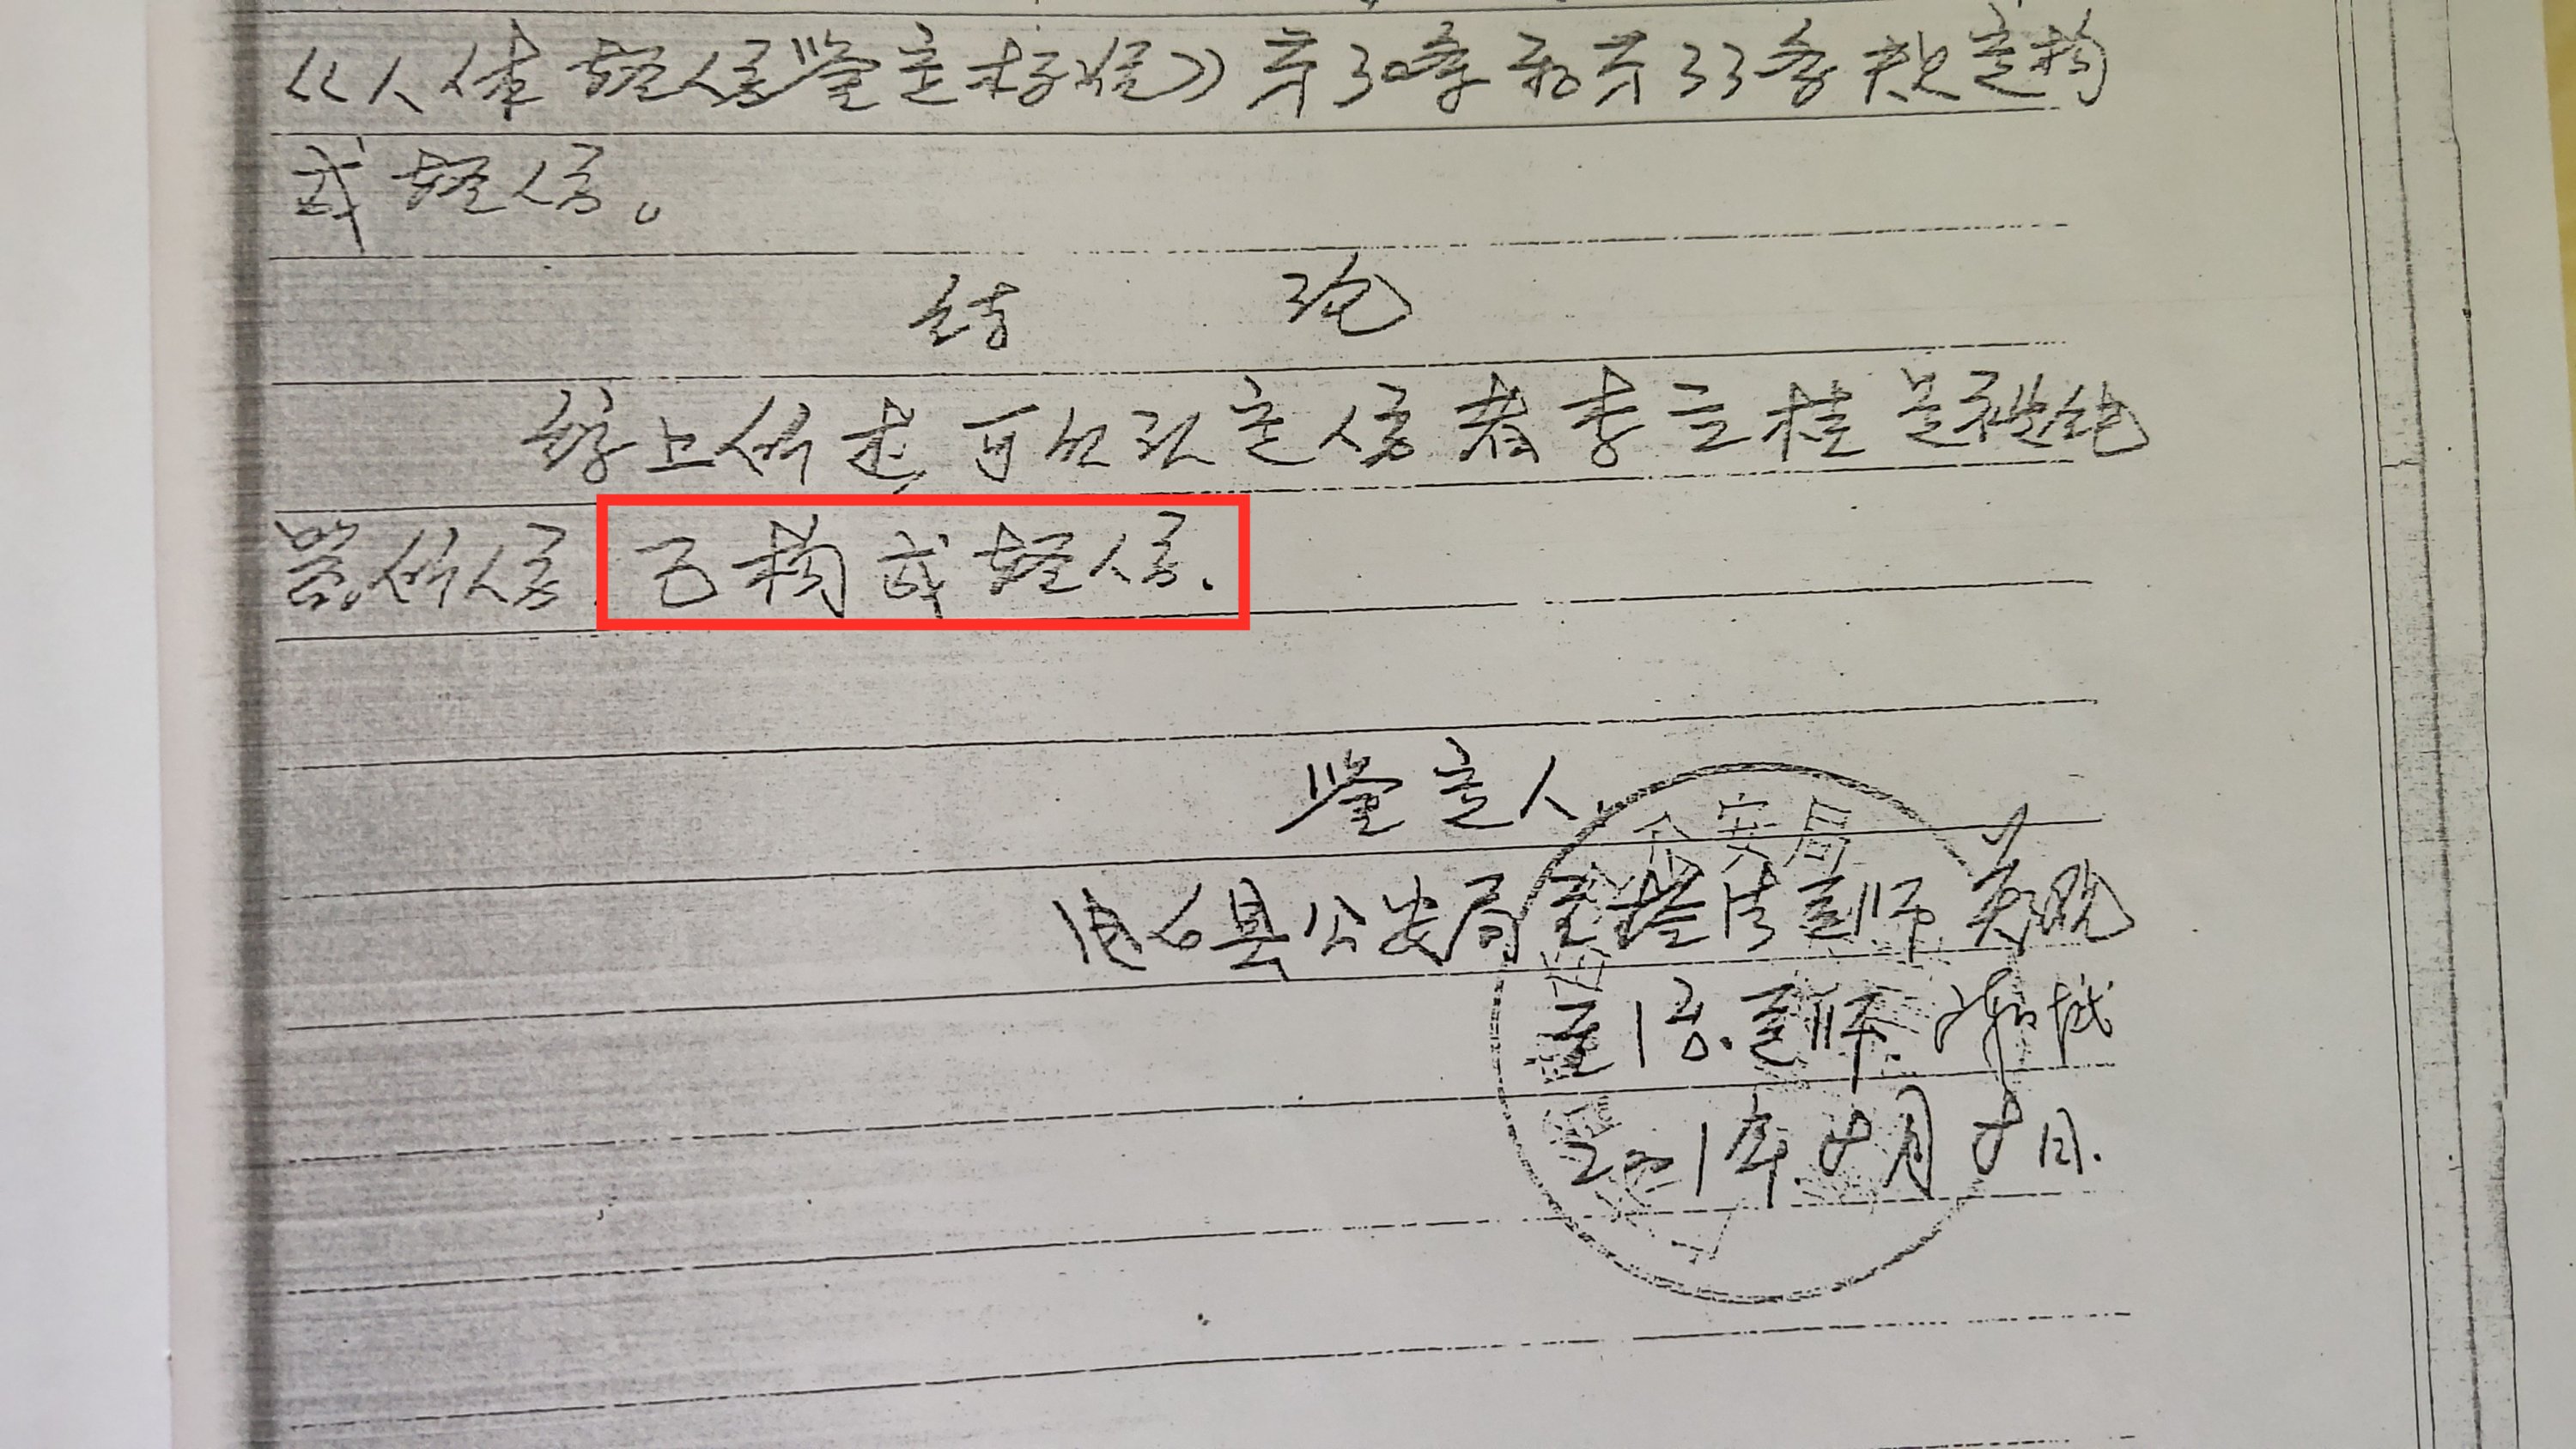 《人体轻伤鉴定标准》第30条和第33条规定构
成轻伤。
结 论
综上所述,可以认定伤者李立桂是被钝
器所伤,已构成轻伤.
鉴定人.
县公安局主检法医师
主任法医师
二00一年 月 日.
公安局